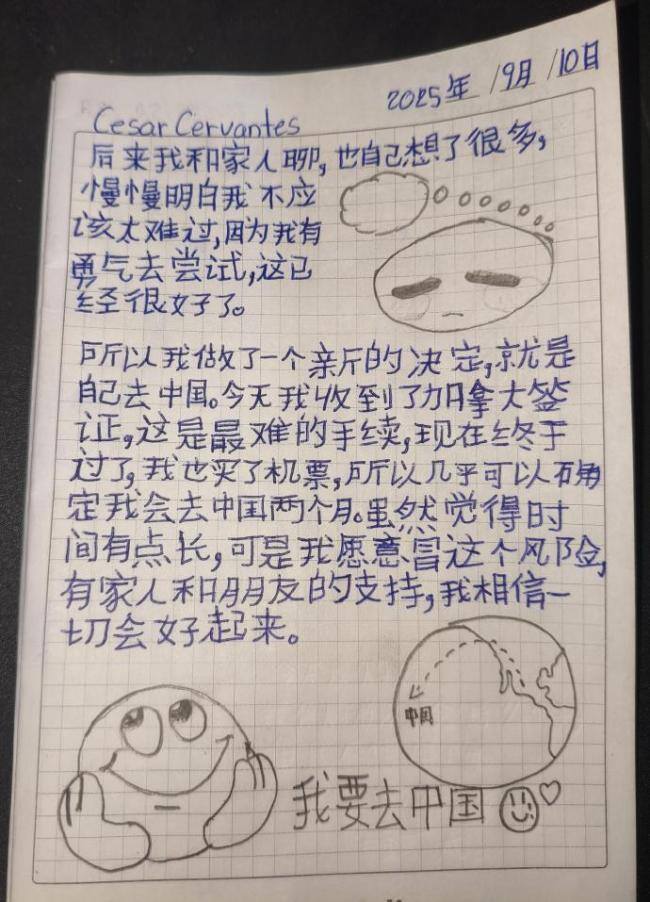 2025年 /9月 /10日
Cesar Cervantes
后来我和家人聊,也自己想了很多,
慢慢明白我不应
该太难过,因为我有
勇气去尝试,这已
经很好了。
所以我做了一个新的决定,就是
自己去中国。今天我收到了加拿大签
证,这是最难的手续,现在终于
过了,我也买了机票,所以几乎可以确
定我会去中国两个月。虽然觉得时
间有点长,可是我愿意冒这个风险,
有家人和朋友的支持,我相信一
切会好起来。
中国
我要去中国